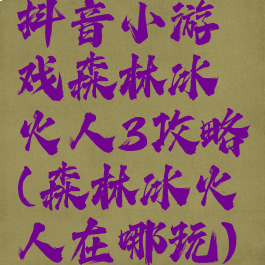 抖音小游
戏森林冰
火人3攻略
(森林冰火
人在哪玩)